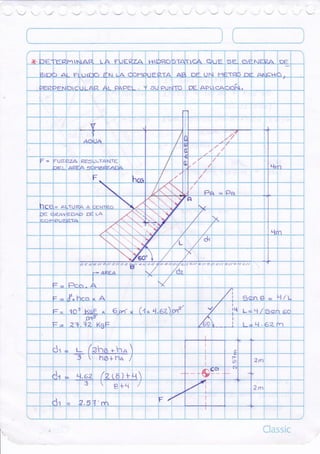 * DETERMINAR LA FUERZA HIDROSTATICA QUE SE GENERA DE
BIDO AL FLUIDO EN LA COMPUERTA AB DE UN METRO DE ANCHO,
PERPENDICULAR AL PAPEL. Y SU PUNTO DE APLICACION.
AGUA
PARED
F = FUERZA RESULTANTE
DEL AREA SOMBREADA
F
hcg
4m
A
PA = PA
hcg = ALTURA A CENTRO
DE GRAVEDAD DE LA
COMPUERTA
4m
L
d1
60°
B
AREA
d2
F = Pcg . A
F = γ.hcg x A
F = 10³ KgF/m³ x 6m x (1x4.62)m²
F = 27.72 KgF
Sen θ = 4/L
4
L = 4/Sen 60
L = 4.62 m
60
d1 = L/3 (2hB + hA / hB + hA)
d1 = 4.62/3 (2(8)+4 / 8+4)
d1 = 2.57 m
2.57m
2m
cg
2m
F
Classic